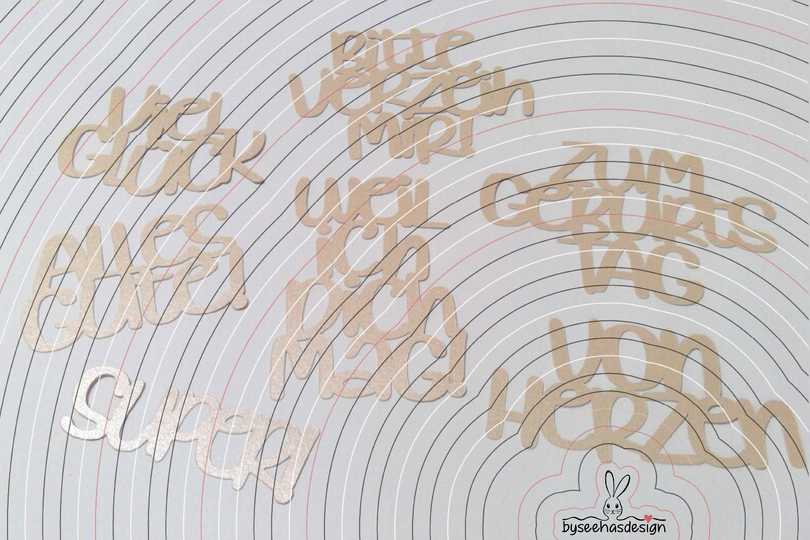 Bitte
VERZEIH
MIR!
Viel
GLÜCK
ZUM
GEBURTS
TAG
WEIL
ich
Dich
MAG!
ALLES
GUTE!
VON
HERZEN
SUPER!
byseehasdesign